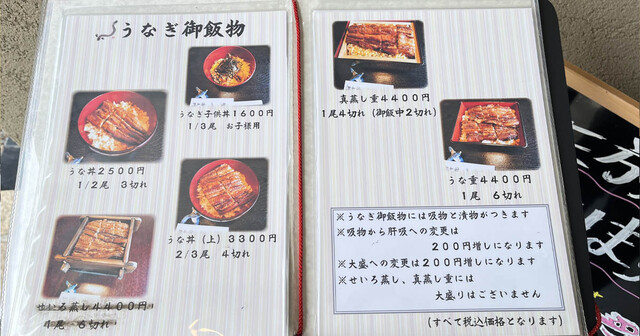 うなぎ御飯物
うなぎ子供丼1600円
1/3尾 お子様用
うな丼2500円
1/2尾 3切れ
うな丼(上)3300円
2/3尾 4切れ
せいろ蒸し4400円
4尾 6切れ
真蒸し重4400円
1尾4切れ(御飯中2切れ)
うな重4400円
1尾 6切れ
※うなぎ御飯物には吸物と漬物がつきます
※吸物から肝吸への変更は
200円増しになります
※大盛への変更は200円増しになります
※せいろ蒸し、真蒸し重には
大盛りはございません
(すべて税込価格となります)